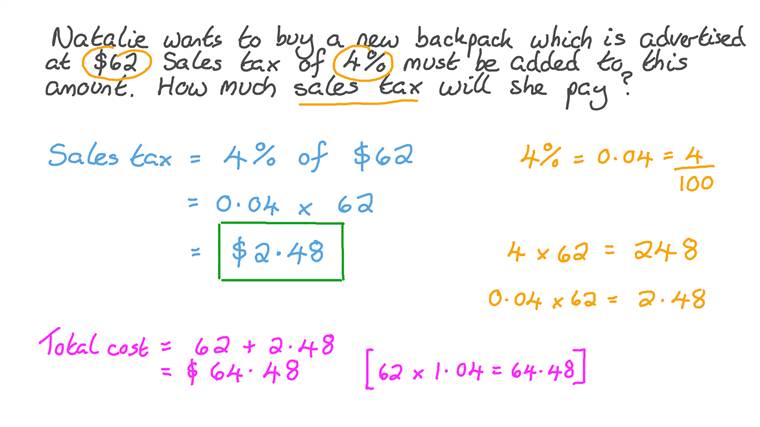 Natalie wants to buy a new backpack which is advertised
at $62 Sales tax of 4% must be added to this
amount. How much sales tax will she pay?
Sales tax = 4% of $62
= 0.04 × 62
= $2.48
4% = 0.04 = 4/100
4 × 62 = 248
0.04 × 62 = 2.48
Total cost = 62 + 2.48
= $64.48 [62 × 1.04 = 64.48]